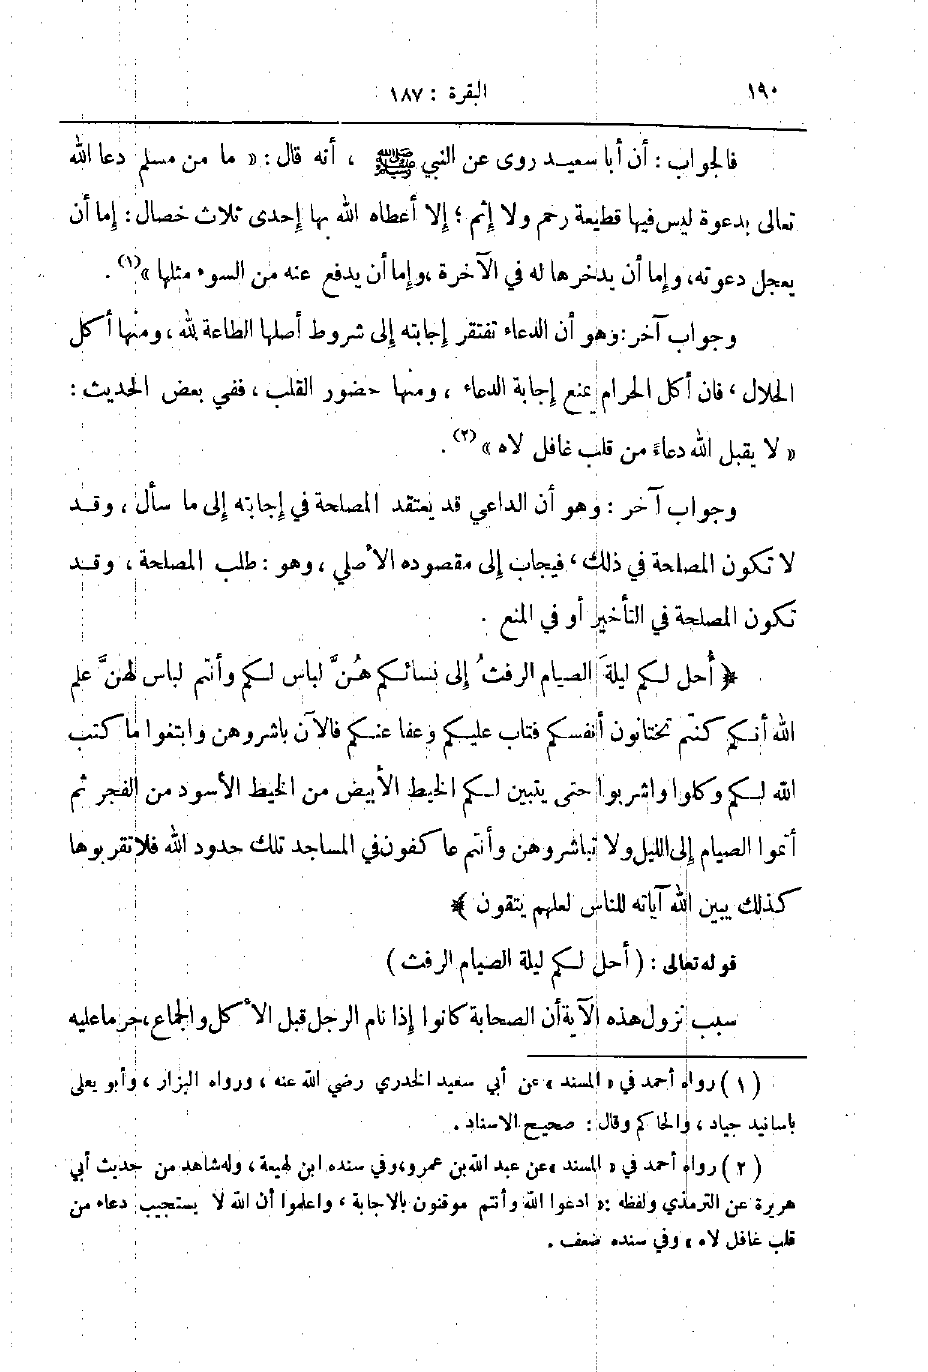 ١٩٠ البقرة : ١٨٧
فالجواب : أن أبا سعيد روى عن النبي ﷺ ، أنه قال : « ما من مسلم دعا الله
تعالى بدعوة ليس فيها قطيعة رحم ولا إثم ؛ إلا أعطاه الله بها إحدى ثلاث خصال : إما أن
يعجل دعوته، وإما أن يدخرها له في الآخرة ،وإما أن يدفع عنه من السوء مثلها »(١) .
وجواب آخر :وهو أن الدعاء تفتقر إجابته إلى شروط أصلها الطاعة لله ، ومنها أكل
الحلال ، فان أكل الحرام يمنع إجابة الدعاء ، ومنها حضور القلب ، ففي بعض الحديث :
« لا يقبل الله دعاءً من قلب غافل لاه »(٢) .
وجواب آخر : وهو أن الداعي قد يعتقد المصلحة في إجابته إلى ما سأل ، وقد
لا تكون المصلحة في ذلك ، فيجاب إلى مقصوده الأصلي ، وهو : طلب المصلحة ، وقد
تكون المصلحة في التأخير أو في المنع .
﴿ أُحل لكم ليلةَ الصيام الرفثُ إلى نسائكم هُنَّ لباس لكم وأنتم لباس لهنَّ علم
الله أنكم كنتم تختانون أنفسكم فتاب عليكم وعفا عنكم فالآن باشروهن وابتغوا ما كتب
الله لكم وكلوا واشربوا حتى يتبين لكم الخيط الأبيض من الخيط الأسود من الفجر ثم
أتموا الصيام إلى الليل ولا تباشروهن وأنتم عاكفون في المساجد تلك حدود الله فلا تقربوها
كذلك يبين الله آياته للناس لعلهم يتقون ﴾
قوله تعالى : ( أحل لكم ليلة الصيام الرفث )
سبب نزول هذه الآية أن الصحابة كانوا إذا نام الرجل قبل الأكل والجماع، حرما عليه
( ١ ) رواه أحمد في « المسند » عن أبي سعيد الخدري رضي الله عنه ، ورواه البزار ، وأبو يعلى
بأسانيد جياد ، والحاكم وقال : صحيح الاسناد .
( ٢ ) رواه أحمد في « المسند »عن عبد الله بن عمرو،وفي سنده ابن لهيعة ، وله شاهد من حديث أبي
هريرة عن الترمذي ولفظه :« ادعوا الله وأنتم موقنون بالاجابة ، واعلموا أن الله لا يستجيب دعاء من
قلب غافل لاه » وفي سنده ضعف .